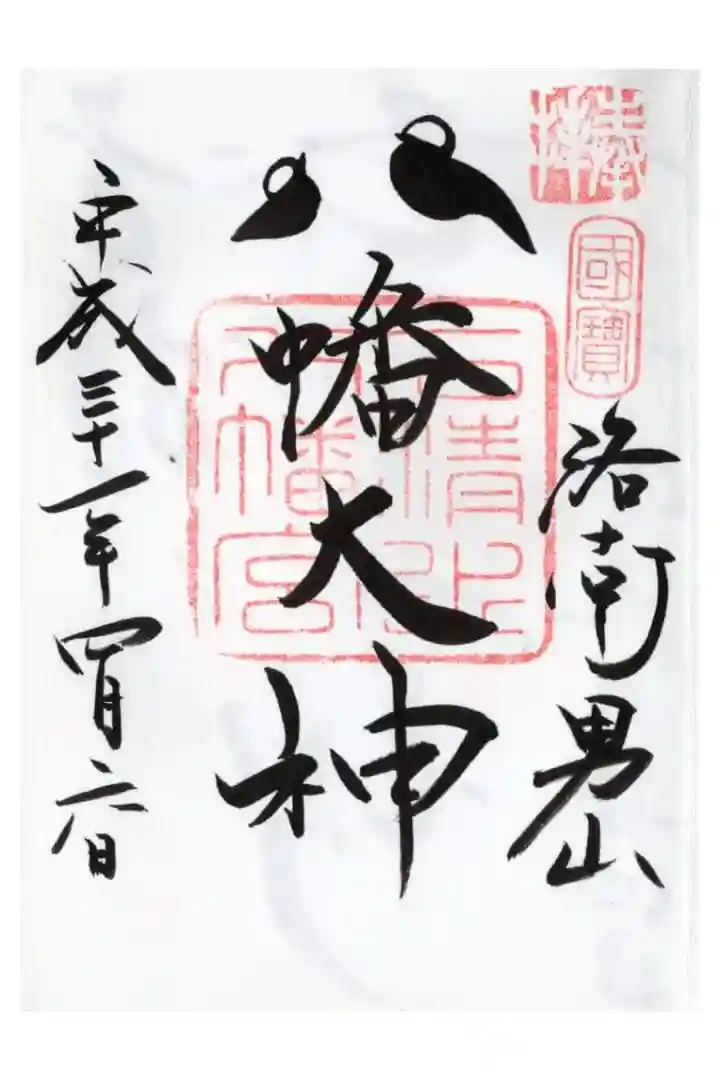 奉拝
國寶
洛南男山
八幡大神
石清水八幡宮
平成三十一年四月六日